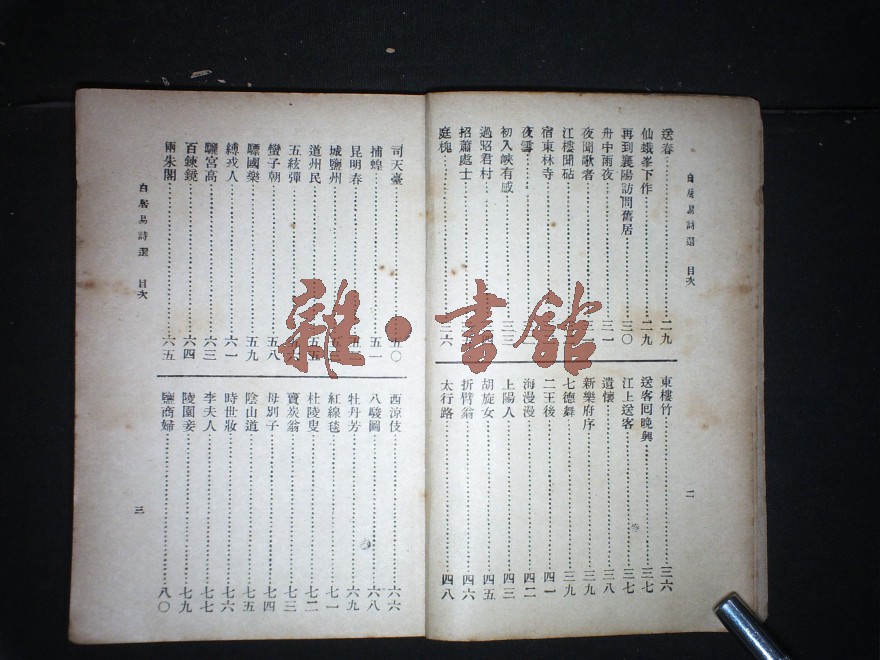 白居易詩選 目次
送春 二九
仙娥峯下作 二九
再到襄陽訪問舊居 三〇
舟中雨夜 三一
夜聞歌者
江樓聞砧
宿東林寺
夜雪
初入峽有感 三三
過昭君村
招蕭處士
庭槐 三六
東樓竹 三六
送客回晚興 三七
江上送客 三七
遣懷 三八
新樂府序 三九
七德舞 三九
二王後 四一
海漫漫 四二
上陽人 四三
胡旋女 四五
折臂翁 四六
太行路 四八
二
司天臺 五〇
捕蝗 五一
昆明春
城鹽州
道州民 五五
五絃彈 五六
蠻子朝 五八
驃國樂 五九
縛戎人 六一
驪宮高 六三
百鍊鏡 六四
兩朱閣 六五
西涼伎 六六
八駿圖 六八
牡丹芳 六九
紅線毯 七一
杜陵叟 七二
賣炭翁 七三
母別子 七四
陰山道 七五
時世妝 七六
李夫人 七七
陵園妾 七九
鹽商婦 八〇
白居易詩選 目次
三
雜·書館